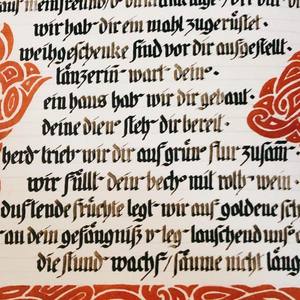 wir hab dir ein mahl zugerüstet.
weihgeschenke sind vor dir aufgestellt.
tänzerin wart dein.
ein haus hab wir dir gebaut.
deine dien steh dir bereit.
herd trieb wir dir auf grün flur zusam
wir füllt dein bech mit roth wein.
duftende früchte legt wir auf goldene sch
an dein gefängniß v leg lauschend uns
die stund wachs/ säume nicht läng